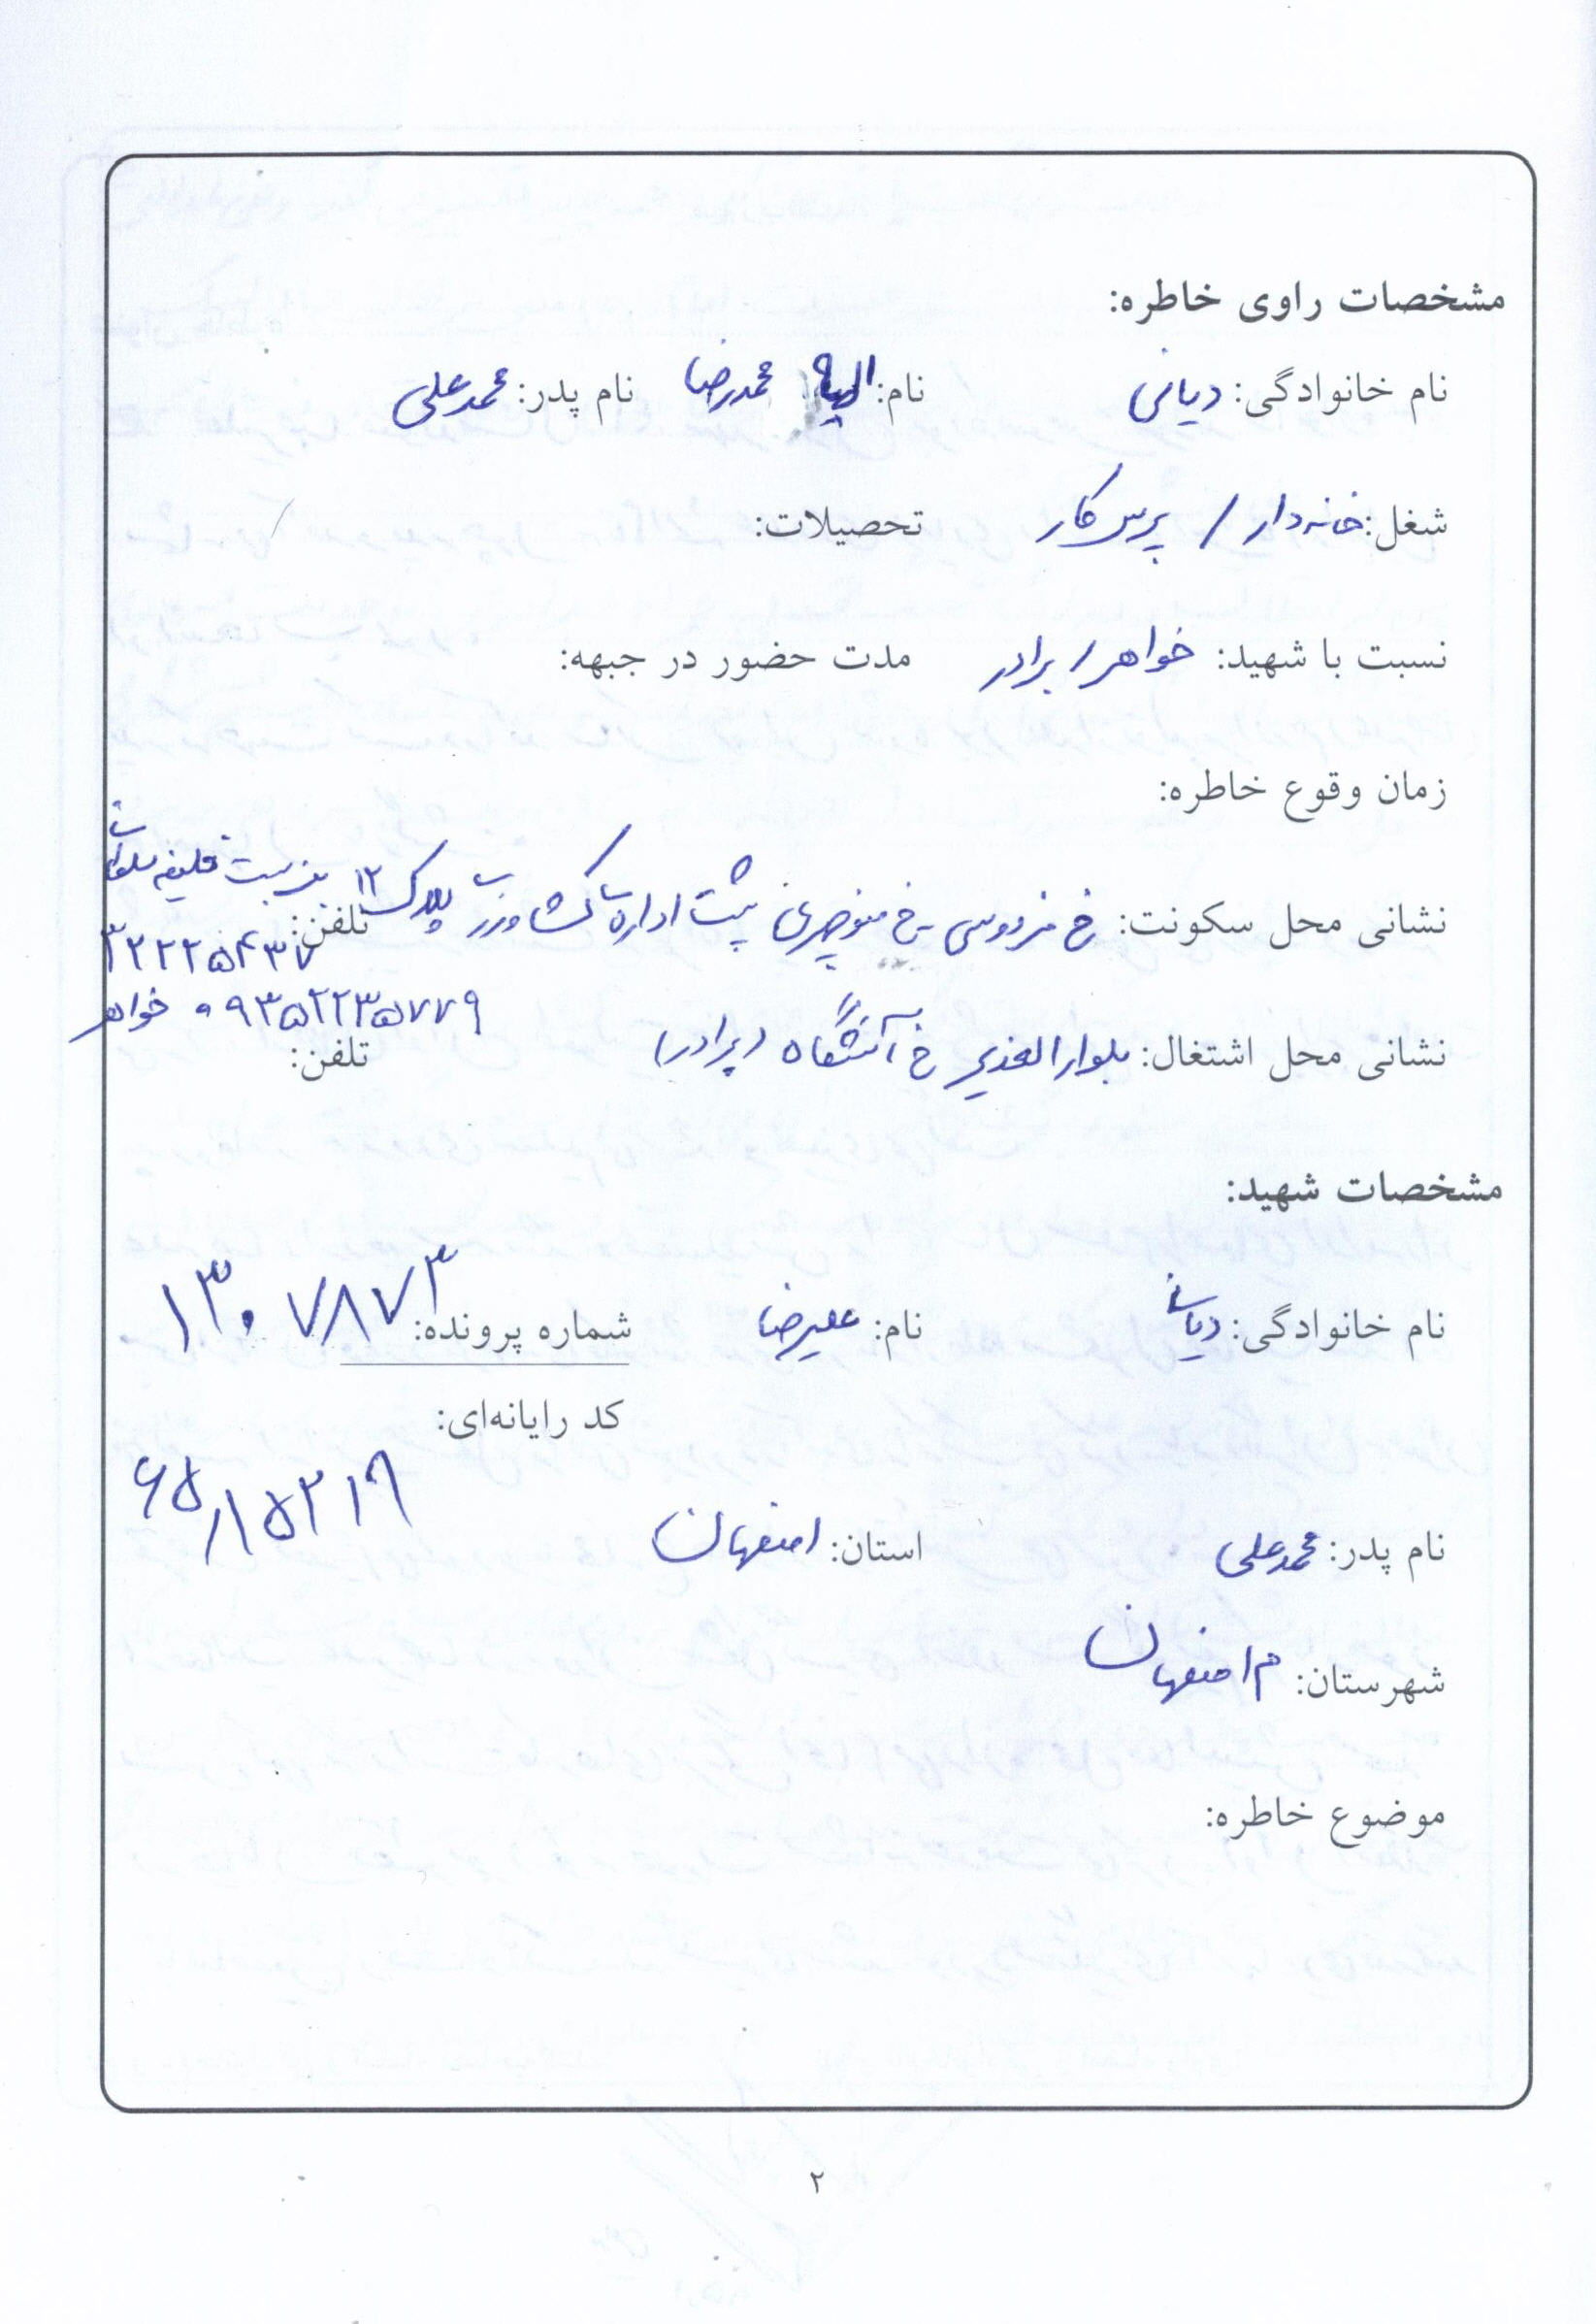 مشخصات راوی خاطره:
نام خانوادگی: دیانی نام: محمدرضا نام پدر: محمدعلی
شغل: خانه‌دار / پرس کار تحصیلات:
نسبت با شهید: خواهر / برادر مدت حضور در جبهه:
زمان وقوع خاطره:
نشانی محل سکونت: خ فردوسی خ منوچهری پشت اداره کشاورزی پلاک ۱۲ بن بست خلیفه سلطانی تلفن: ۳۲۲۲۵۴۳۷
۰۹۳۵۲۲۳۵۷۷۹ خواهر
نشانی محل اشتغال: بلوار الغدیر خ (برادر) تلفن:
مشخصات شهید:
نام خانوادگی: دیانی نام: علیرضا شماره پرونده: ۱۳۰۷۸۷۳
کد رایانه‌ای:
۶۵/۱۵۲۱۹
نام پدر: محمدعلی استان: اصفهان
شهرستان: م اصفهان
موضوع خاطره:
۲